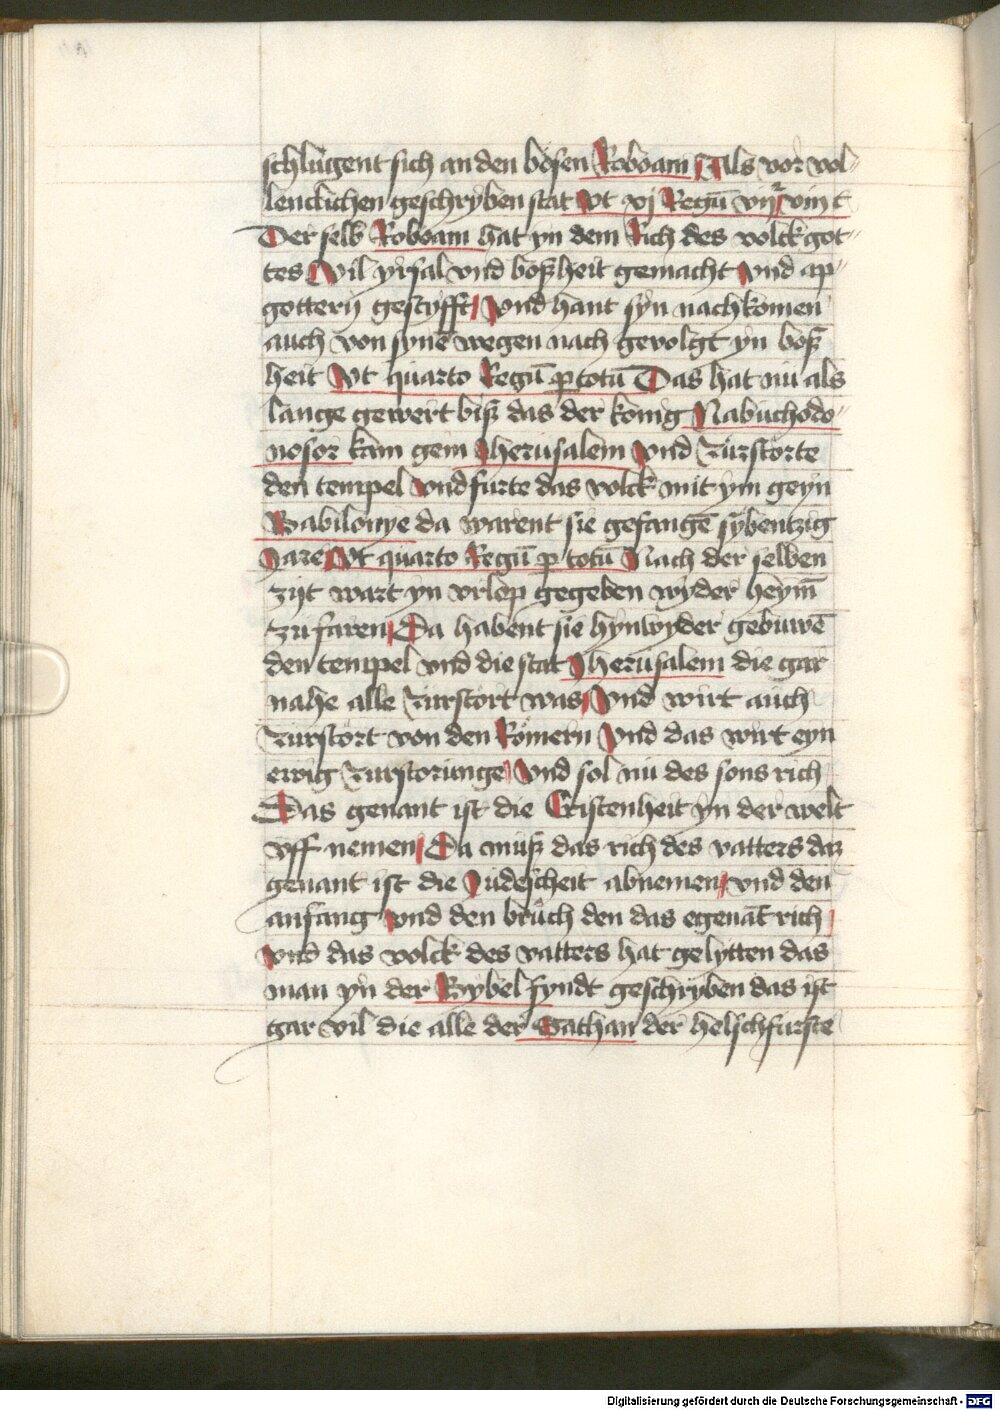 schlugent sich an den bösen Roboam Als vor vol-
lenclichen geschryben stat Vt xj Regū
Der selb Roboam hat yn dem Rich des volck got-
tes Vil yrsal vnd boßheit gemacht Vnd ap-
gotterij gestyfft Vnd hant syn nachkomen
auch von synē wegen nach gevolgt yn boß
heit Vt quarto Regū ꝑ totū Das hat nu als
lange gewert biß das der konig Nabuchodo-
nosor kam gem Jherusalem Vnd zurstorte
den tempel Vnd furte das volck mit ym geyn
Babilonye da warent sie gefangē sybentzig
Jare Vt quarto Regū ꝑ totū Nach der selben
zijt wart yn vrlop gegeben wyder heym̄
tzu faren Da habent sie hynwyder gebuwē
den tempel vnd die stat Jherusalem die gar
nahe alle zurstort was Vnd wirt auch
zurstort von den Römern Vnd das wirt eyn
ewig zurstorunge Vnd sol nu des sons rich
Das genant ist die Cristenheit yn der welt
vff nemen Da muß das rich des vatters daz
genant ist die Judescheit abnemen vnd den
anfang Vnd den bruch den das egenāt rich
Vnd das volck des vatters hat gelytten das
man yn der Bybel fyndt geschryben das ist
gar vil die alle der Sathan der helsch furste